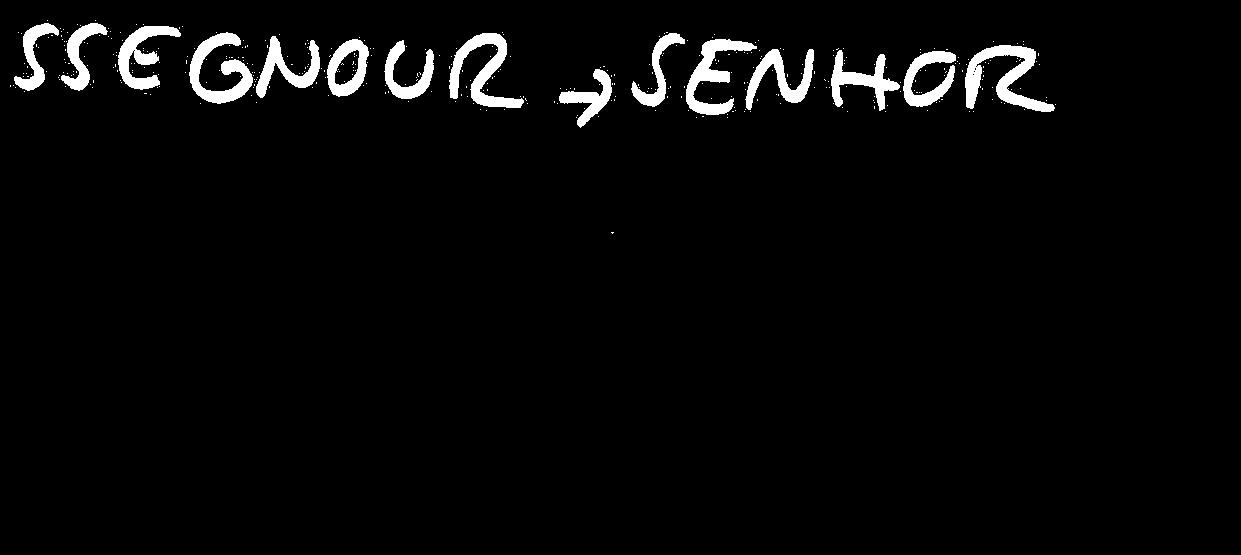 SSEGNOUR → SENHOR